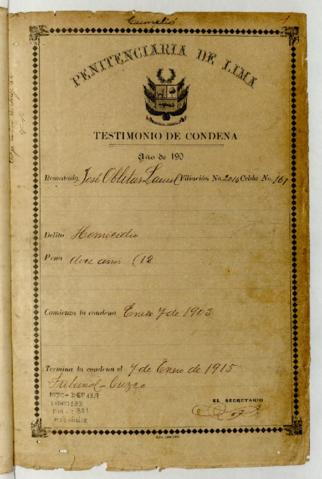 Cumplió
PENITENCIARIA DE LIMA
TESTIMONIO DE CONDENA
Año de 190
Rematado, José Oblitas Filiación No. 2014 Celda No. 161
Delito Homicidio
Pena doce años (12
Comienza la condena Enero 7 de 1903
Termina la condena el 7 de Enero de 1915
Tribunal - Cuzco
EL SECRETARIO